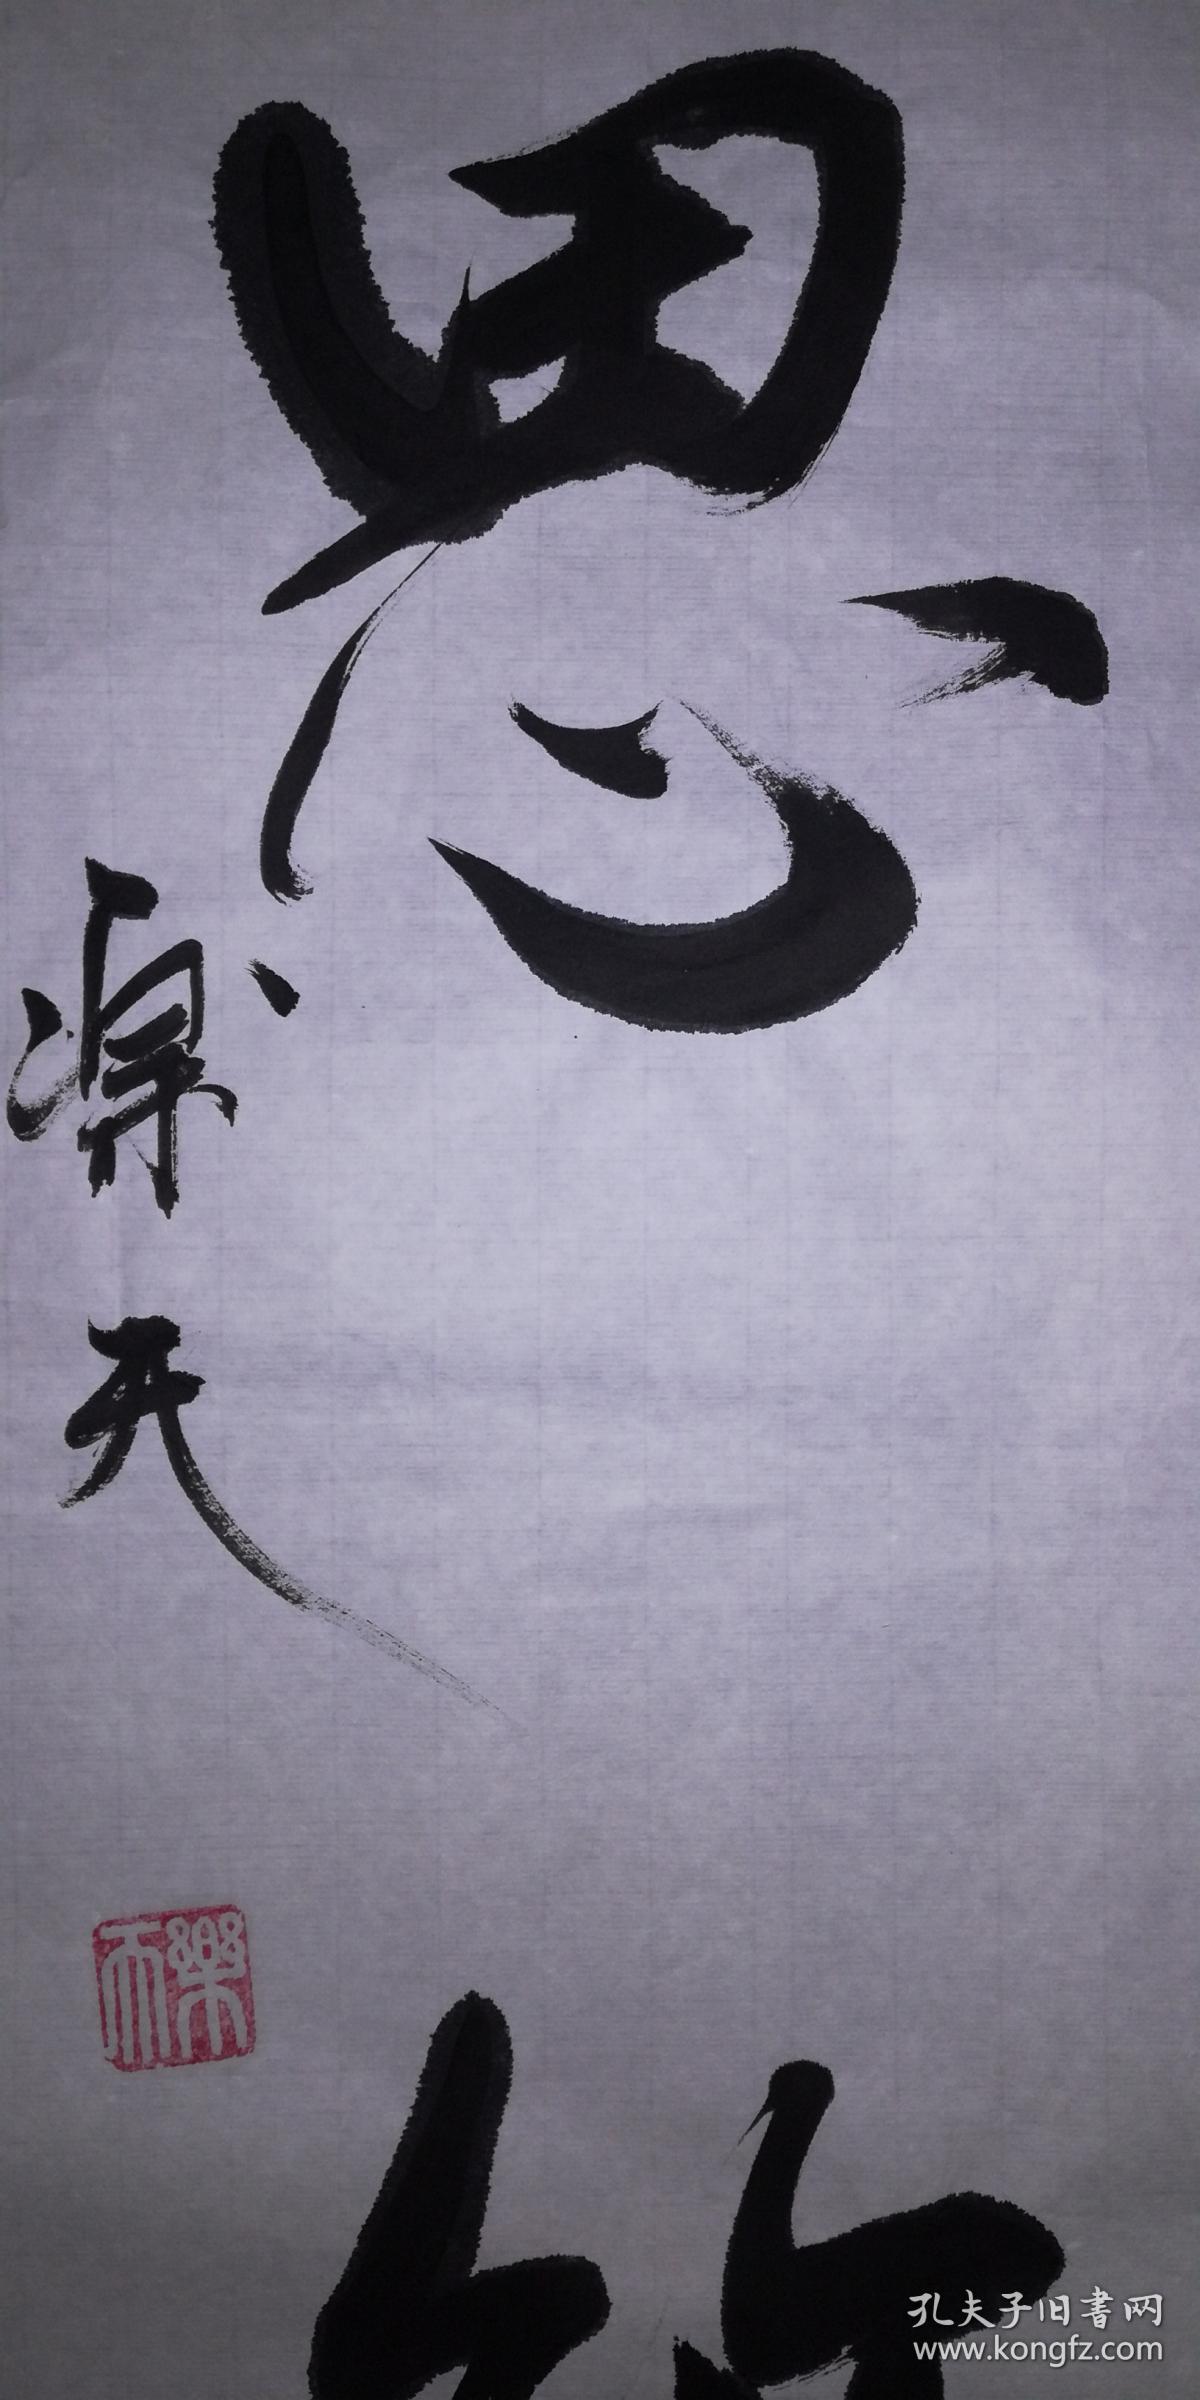 思
樂天
樂天
孔夫子旧書网
www.kongfz.com